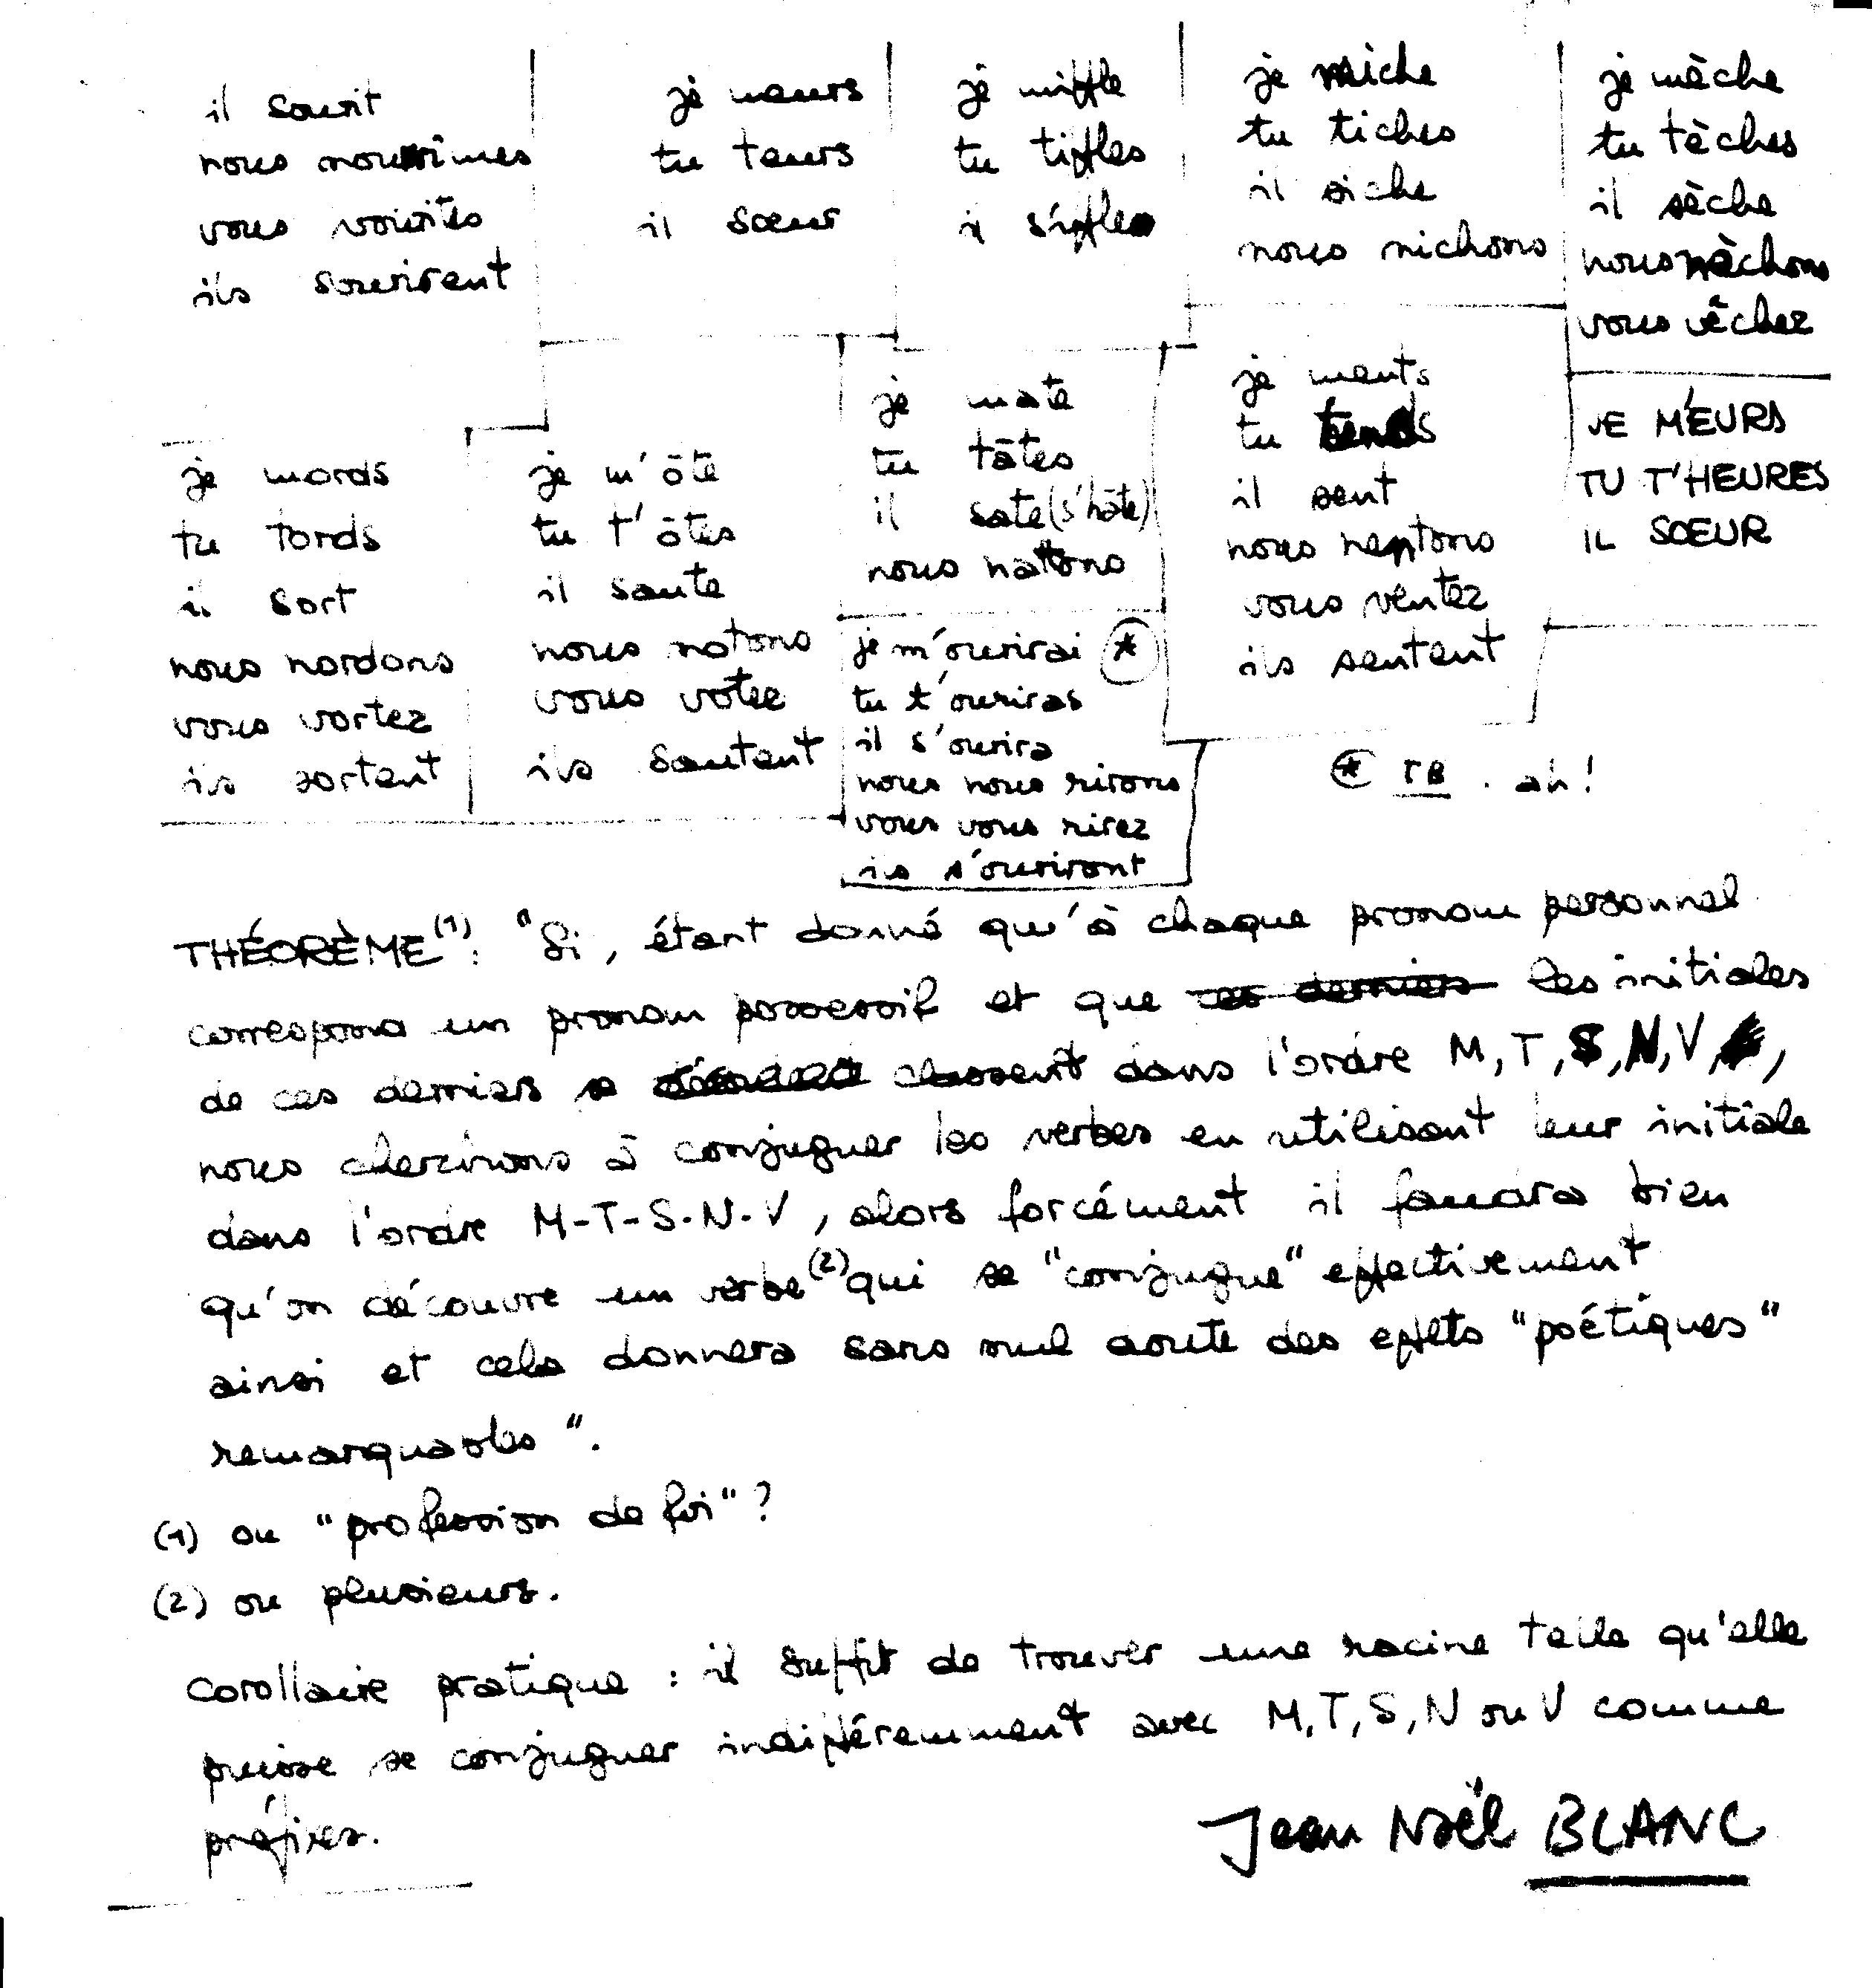 il sourit
nous nourrîmes
vous vourîtes
ils sourirent
je meurs
tu teurs
il sœur
je miffle
tu tiffles
il siffle
je miche
tu tiches
il siche
nous nichons
je mèche
tu tèches
il sèche
nous nèchons
vous vêchez
je mords
tu tords
il sort
nous nordons
vous vortez
ils sortent
je m'ôte
tu t'ôtes
il saute
nous notons
vous votez
ils sautent
je mate
tu tâtes
il sate (s'hâte)
nous nattons
je m'ourirai *
tu t'ouriras
il s'ourira
nous nous rirons
vous vous rirez
ils s'ouriront
je ments
tu tends
il sent
nous nentons
vous ventez
ils sentent
JE M'EURS
TU T'HEURES
IL SŒUR
* TB . ah!
THÉORÈME (1) : "Si, étant donné qu'à chaque pronom personnel
correspond un pronom possessif et que les initiales
de ces derniers se classent dans l'ordre M, T, S, N, V,
nous cherchons à conjuguer les verbes en utilisant leur initiale
dans l'ordre M-T-S-N-V, alors forcément il faudra bien
qu'on découvre un verbe (2) qui se "conjugue" effectivement
ainsi et cela donnera sans nul doute des effets "poétiques"
remarquables".
(1) ou "profession de foi" ?
(2) ou plusieurs.
Corollaire pratique : il suffit de trouver une racine telle qu'elle
puisse se conjuguer indifféremment avec M, T, S, N ou V comme
préfixes.
Jean Noël BLANC